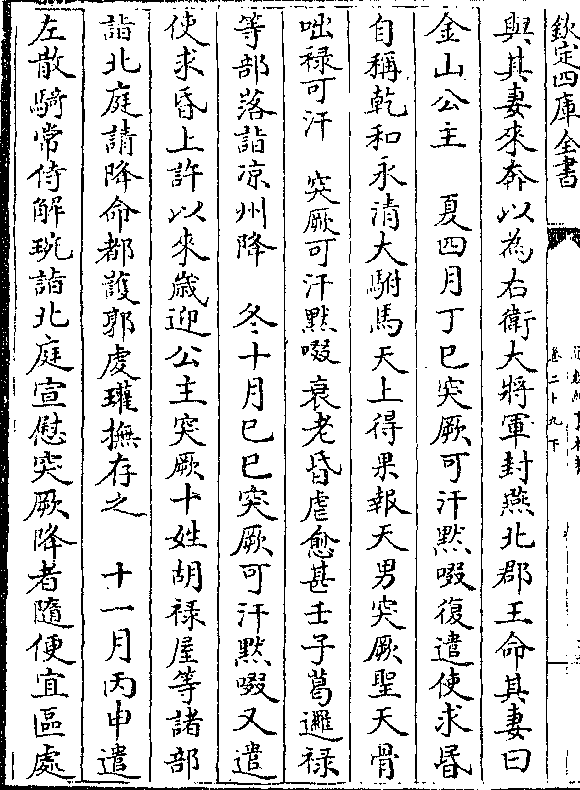 欽定四庫全書
卷二十九下
與其妻來奔以為右衛大將軍封燕北郡王命其妻曰
金山公主　夏四月丁巳突厥可汗黙啜復遣使求昏
自稱乾和永清大駙馬天上得果報天男突厥聖天骨
咄祿可汗　突厥可汗黙啜衰老昏虐愈甚壬子葛邏祿
等部落詣凉州降　冬十月己巳突厥可汗黙啜又遣
使求昏上許以來歲迎公主突厥十姓胡祿屋等諸部
詣北庭請降命都護郭虔瓘撫存之　十一月丙申遣
左散騎常侍解琬詣北庭宣慰突厥降者隨便宜區處